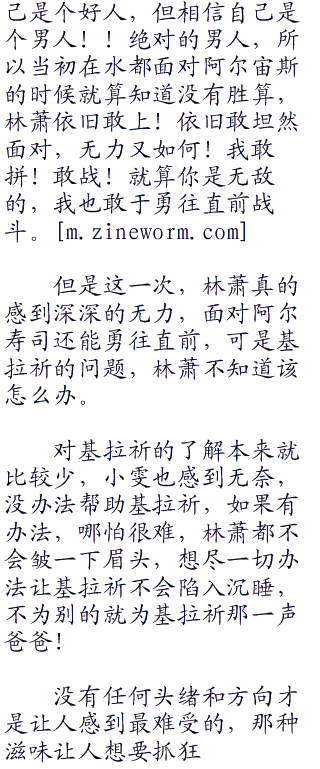 己是个好人，但相信自己是
个男人！！绝对的男人，所
以当初在水都面对阿尔宙斯
的时候就算知道没有胜算，
林萧依旧敢上！依旧敢坦然
面对，无力又如何！我敢
拼！敢战！就算你是无敌
的，我也敢于勇往直前战
斗。[m.zineworm.com]
但是这一次，林萧真的
感到深深的无力，面对阿尔
寿司还能勇往直前，可是基
拉祈的问题，林萧不知道该
怎么办。
对基拉祈的了解本来就
比较少，小雯也感到无奈，
没办法帮助基拉祈，如果有
办法，哪怕很难，林萧都不
会皱一下眉头，想尽一切办
法让基拉祈不会陷入沉睡，
不为别的就为基拉祈那一声
爸爸！
没有任何头绪和方向才
是让人感到最难受的，那种
滋味让人想要抓狂